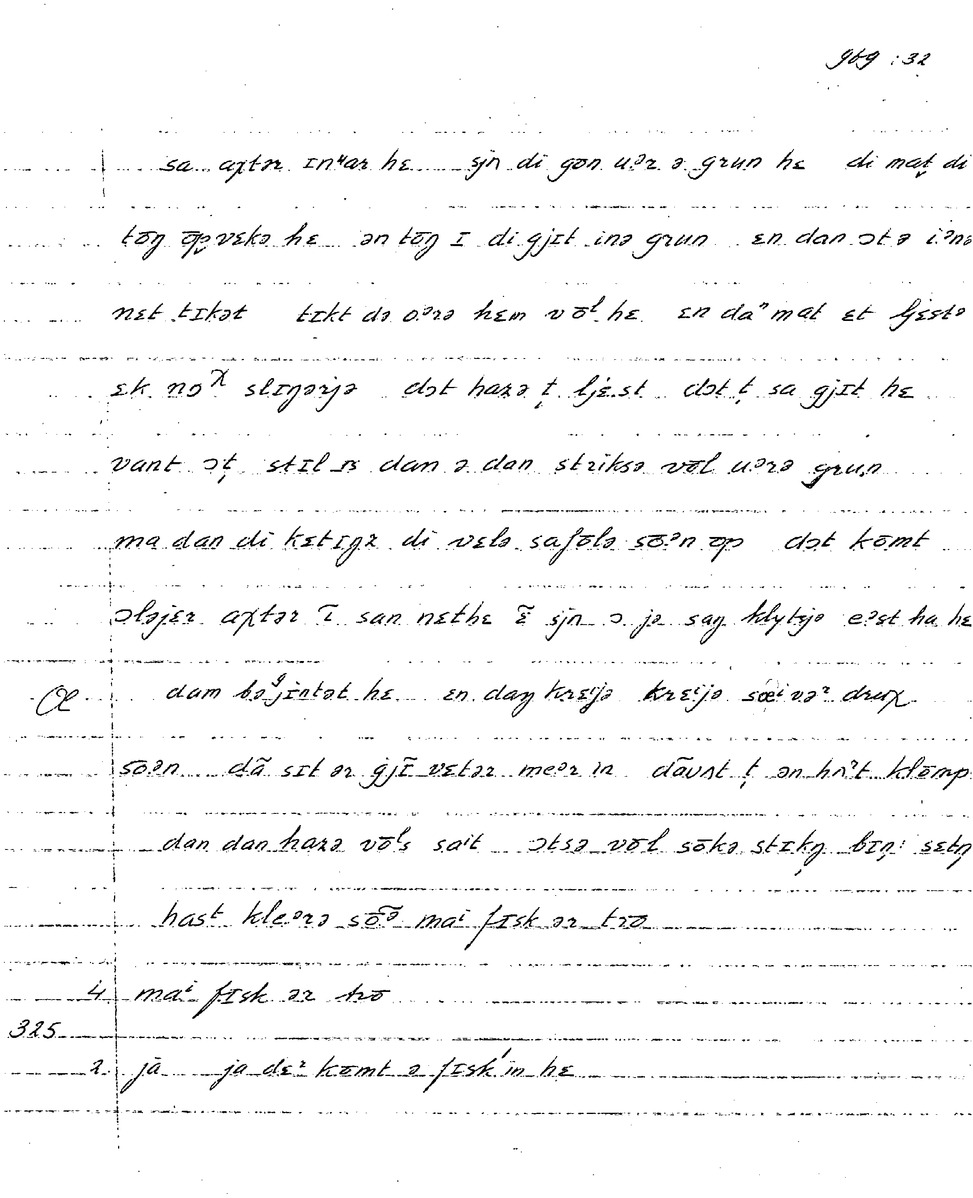 969 : 32
sa aχtər ɪnʷar hɛ sjn di gɔn uᵊr ə grun hɛ di mat̬ di
tōŋ ɔp vɛkə hɛ ən tōŋ ɪ di gjɪt inə grun ɛn dan ɔt ə iᵊnə
nɛt tɪkət tɪkt də oᵊrə hɛm vōˡ hɛ ɛn daⁿ mat ɛt ljɛstə
ɛk nɔᵡ slɪŋərjə dɔt harə ṭ ljɛst dɔt ṭ sa gjɪt hɛ
vant ɔṭ stɪl ɪs dan ə dan striksə vōl uᵊrə grun
ma dan di kɛtɪŋz di vɛlə safōlə sōᵊn ɔp dɔt kōmt
ɔləjɛr aχtər ĩ san nɛthɛ ɛ̃ sjn ɔ jə saŋ klytsjə eᵊst ha hɛ
Œ dam bəᵍjintət hɛ ɛn daŋ krɛⁱjə krɛⁱjə sœⁱvəʳ druχ
sōən dã sɪt ər gjĩ vɛtər meər in dãvʌt ṭ ən hʌᵊt klōmp
dan dan harə vōˡs saⁱt ɔtsə vōl sōkə stɪkŋ bɪn sɛtŋ
hast kleᵊrə sōə̃ maⁱ fɪsk ər trō
4 maⁱ fɪsk ər trō
325
2 jā ja dɛʳ kōmt ə fɪsk in hɛ